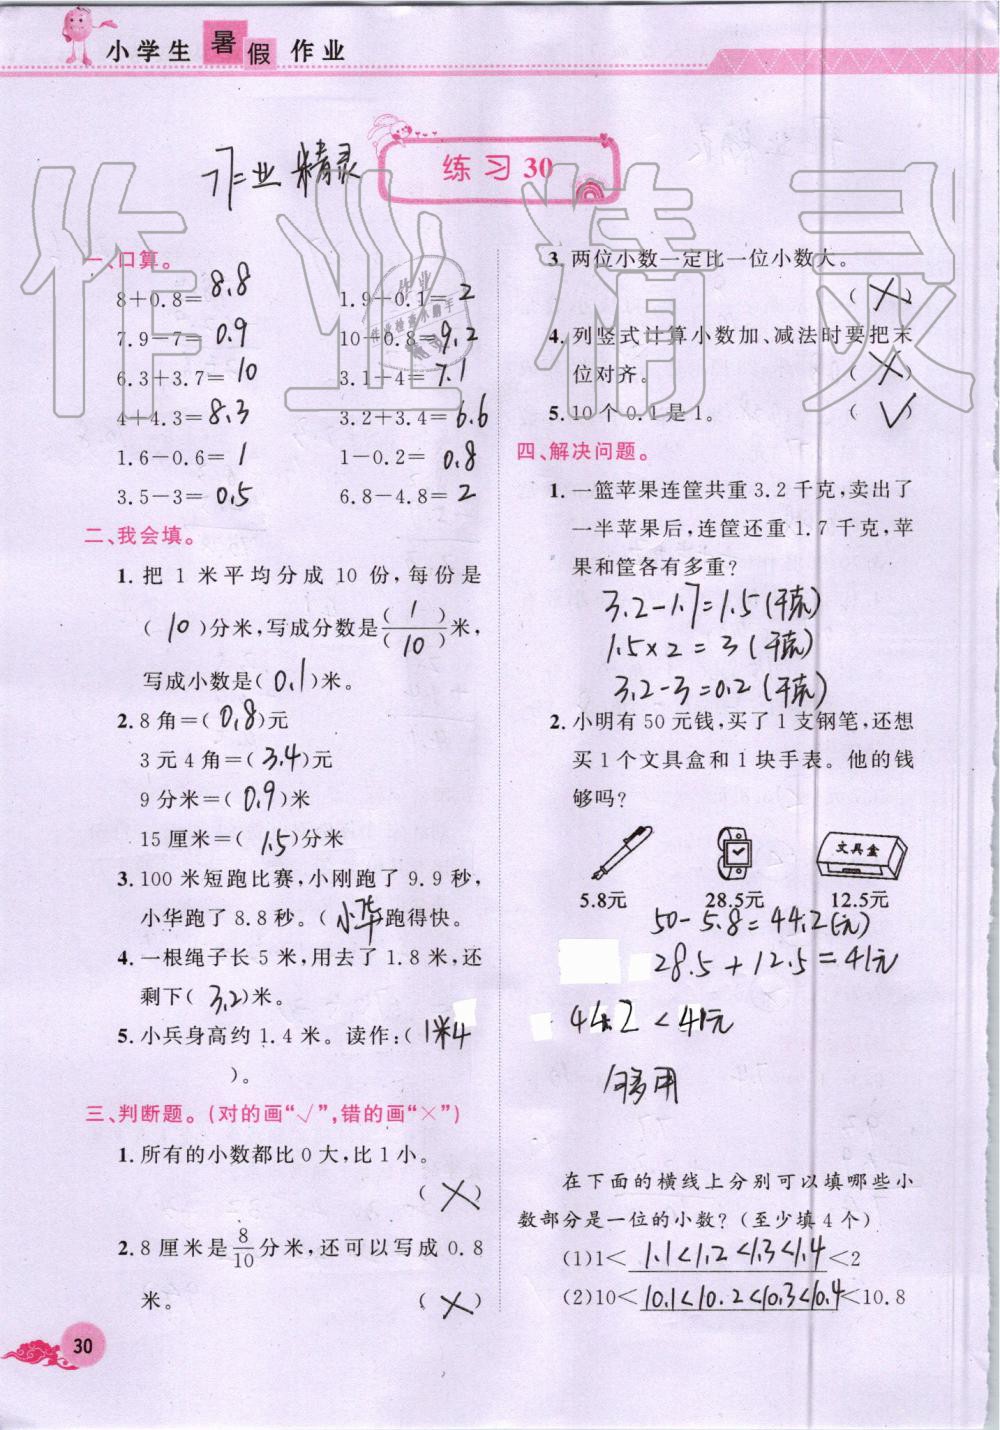 小学生暑假作业
练习30
作业精灵
作业精灵
一、口算。
8+0.8=8.8 1.9+0.1=2
7.9-7=0.9 10-0.8=9.2
6.3+3.7=10 3.1+4=7.1
4+4.3=8.3 3.2+3.4=6.6
1.6-0.6=1 1-0.2=0.8
3.5-3=0.5 6.8-4.8=2
二、我会填。
1.把1米平均分成10份,每份是
(10)分米,写成分数是(1)/(10)米,
写成小数是(0.1)米。
2.8角=(0.8)元
3元4角=(3.4)元
9分米=(0.9)米
15厘米=(1.5)分米
3.100米短跑比赛,小刚跑了9.9秒,
小华跑了8.8秒。(小华跑得快。
4.一根绳子长5米,用去了1.8米,还
剩下(3.2)米。
5.小兵身高约1.4米。读作:(1米4
)。
三、判断题。(对的画“√”,错的画“×”)
1.所有的小数都比0大,比1小。
(×)
2.8厘米是8/10分米,还可以写成0.8
米。 (×)
3.两位小数一定比一位小数大。
(×)
4.列竖式计算小数加、减法时要把末
位对齐。 (×)
5.10个0.1是1。 (√)
四、解决问题。
1.一篮苹果连筐共重3.2千克,卖出了
一半苹果后,连筐还重1.7千克,苹
果和筐各有多重?
3.2-1.7=1.5(千克)
1.5×2=3(千克)
3.2-3=0.2(千克)
2.小明有50元钱,买了1支钢笔,还想
买1个文具盒和1块手表。他的钱
够吗?
文具盒
5.8元 28.5元 12.5元
50-5.8=44.2(元)
28.5+12.5=41元
44.2<41元
够用
在下面的横线上分别可以填哪些小
数部分是一位的小数?(至少填4个)
(1)1<1.1<1.2<1.3<1.4<2
(2)10<10.1<10.2<10.3<10.4<10.8
30